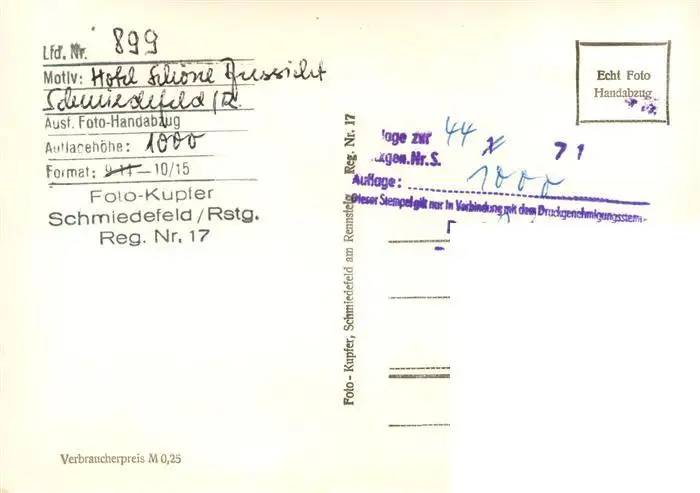 Lfd. Nr. 899
Motiv: Hotel Schöne Aussicht
Schmiedefeld/R.
Ausf. Foto-Handabzug
Auflagehöhe: 1000
Format: 9-14 — 10/15
Foto-Kupfer
Schmiedefeld/Rstg.
Reg. Nr. 17
Verbraucherpreis M 0,25
Foto-Kupfer, Schmiedefeld am Rennsteig Reg. Nr. 17
lage zur 44 71
gen. Nr. S.
Auflage: 1000
Dieser Stempel gilt nur in Verbindung mit dem Druckgenehmigungsstem-
Echt Foto
Handabzug